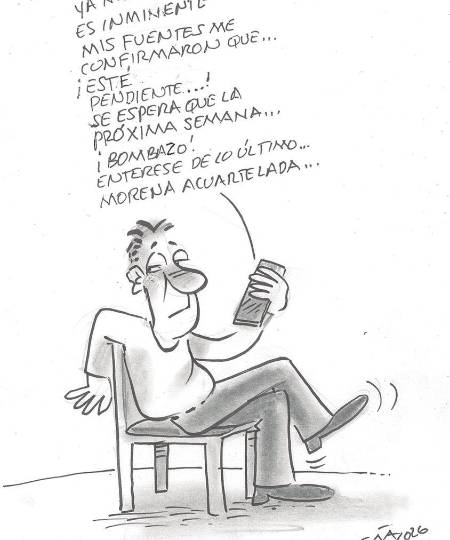 YA
ES INMINENTE
MIS FUENTES ME
CONFIRMARON QUE...
¡ESTÉ
PENDIENTE...!
SE ESPERA QUE LA
PRÓXIMA SEMANA...
¡BOMBAZO!
ENTERESE DE LO ÚLTIMO...
MORENA ACUARTELADA...
2026